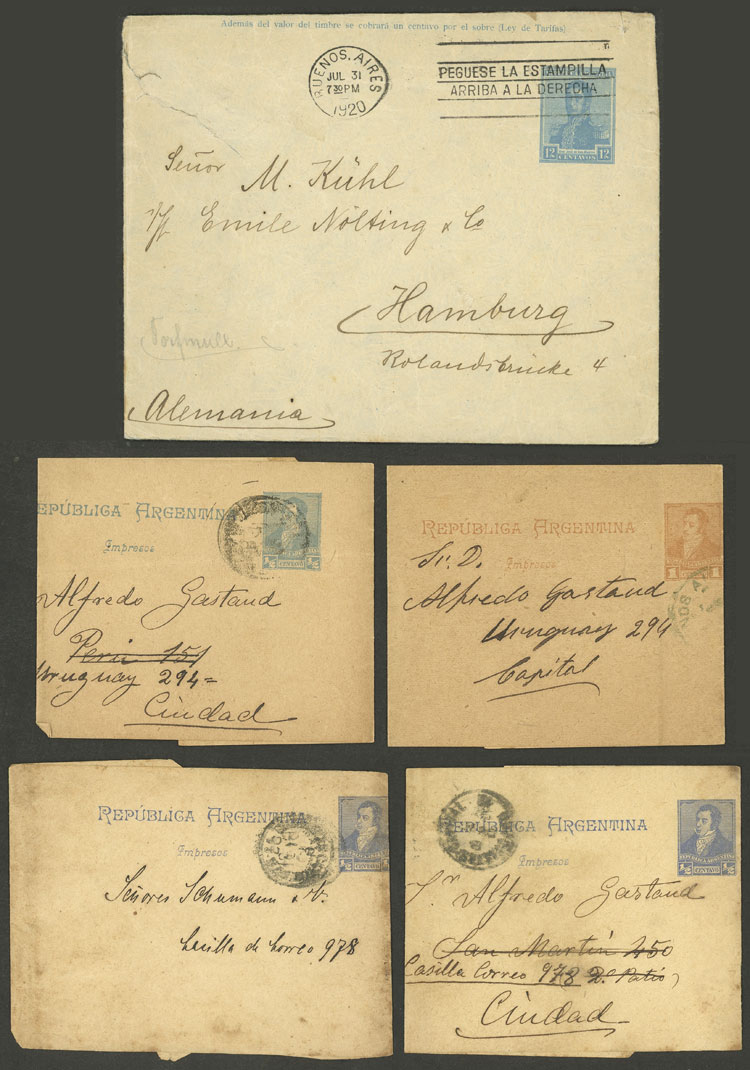 Además del valor del timbre se cobrará un centavo por el sobre (Ley de Tarifas)
BUENOS. AIRES
JUL 31
7 30 PM
1920
PEGUESE LA ESTAMPILLA
ARRIBA A LA DERECHA
12 CENTAVOS 12
Señor M. Kühl
Emile Nölting & Co
Hamburg
Rolandsbrücke 4
Alemania
EPÚBLICA ARGENTIN
Impresos
1/2 CENTAVO 1/2
Alfredo Gastaud
Perú 151
Uruguay 294=
Ciudad
REPÚBLICA ARGENTINA
Impresos
1 1
Sr. D.
Alfredo Gastaud
Uruguay 294
Capital
REPÚBLICA ARGENTINA
Impresos
1/2 CENTAVO 1/2
Señores Schumann &
Casilla de Correo 978
REPÚBLICA ARGENTINA
Impresos
REPUBLICA ARGENTINA
1/2 CENTAVO 1/2
Sr Alfredo Gastaud
San Martín 450
Casilla Correo 978 2º Patio
Ciudad